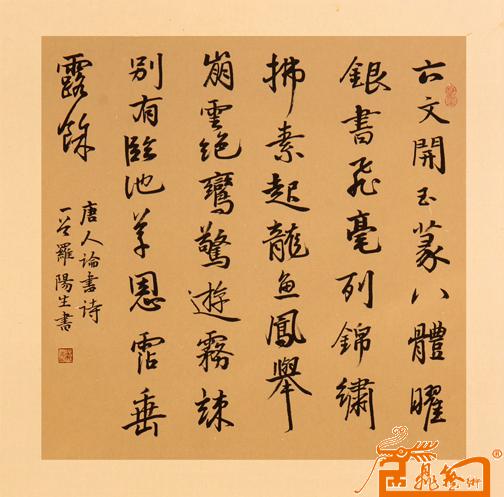 六文開玉篆八體曜
銀書飛毫列錦繡
拂素起龍魚鳳舉
崩雲絕鸞驚遊霧疎
別有臨池草恩霑垂
露餘
唐人論書詩
羅陽生書